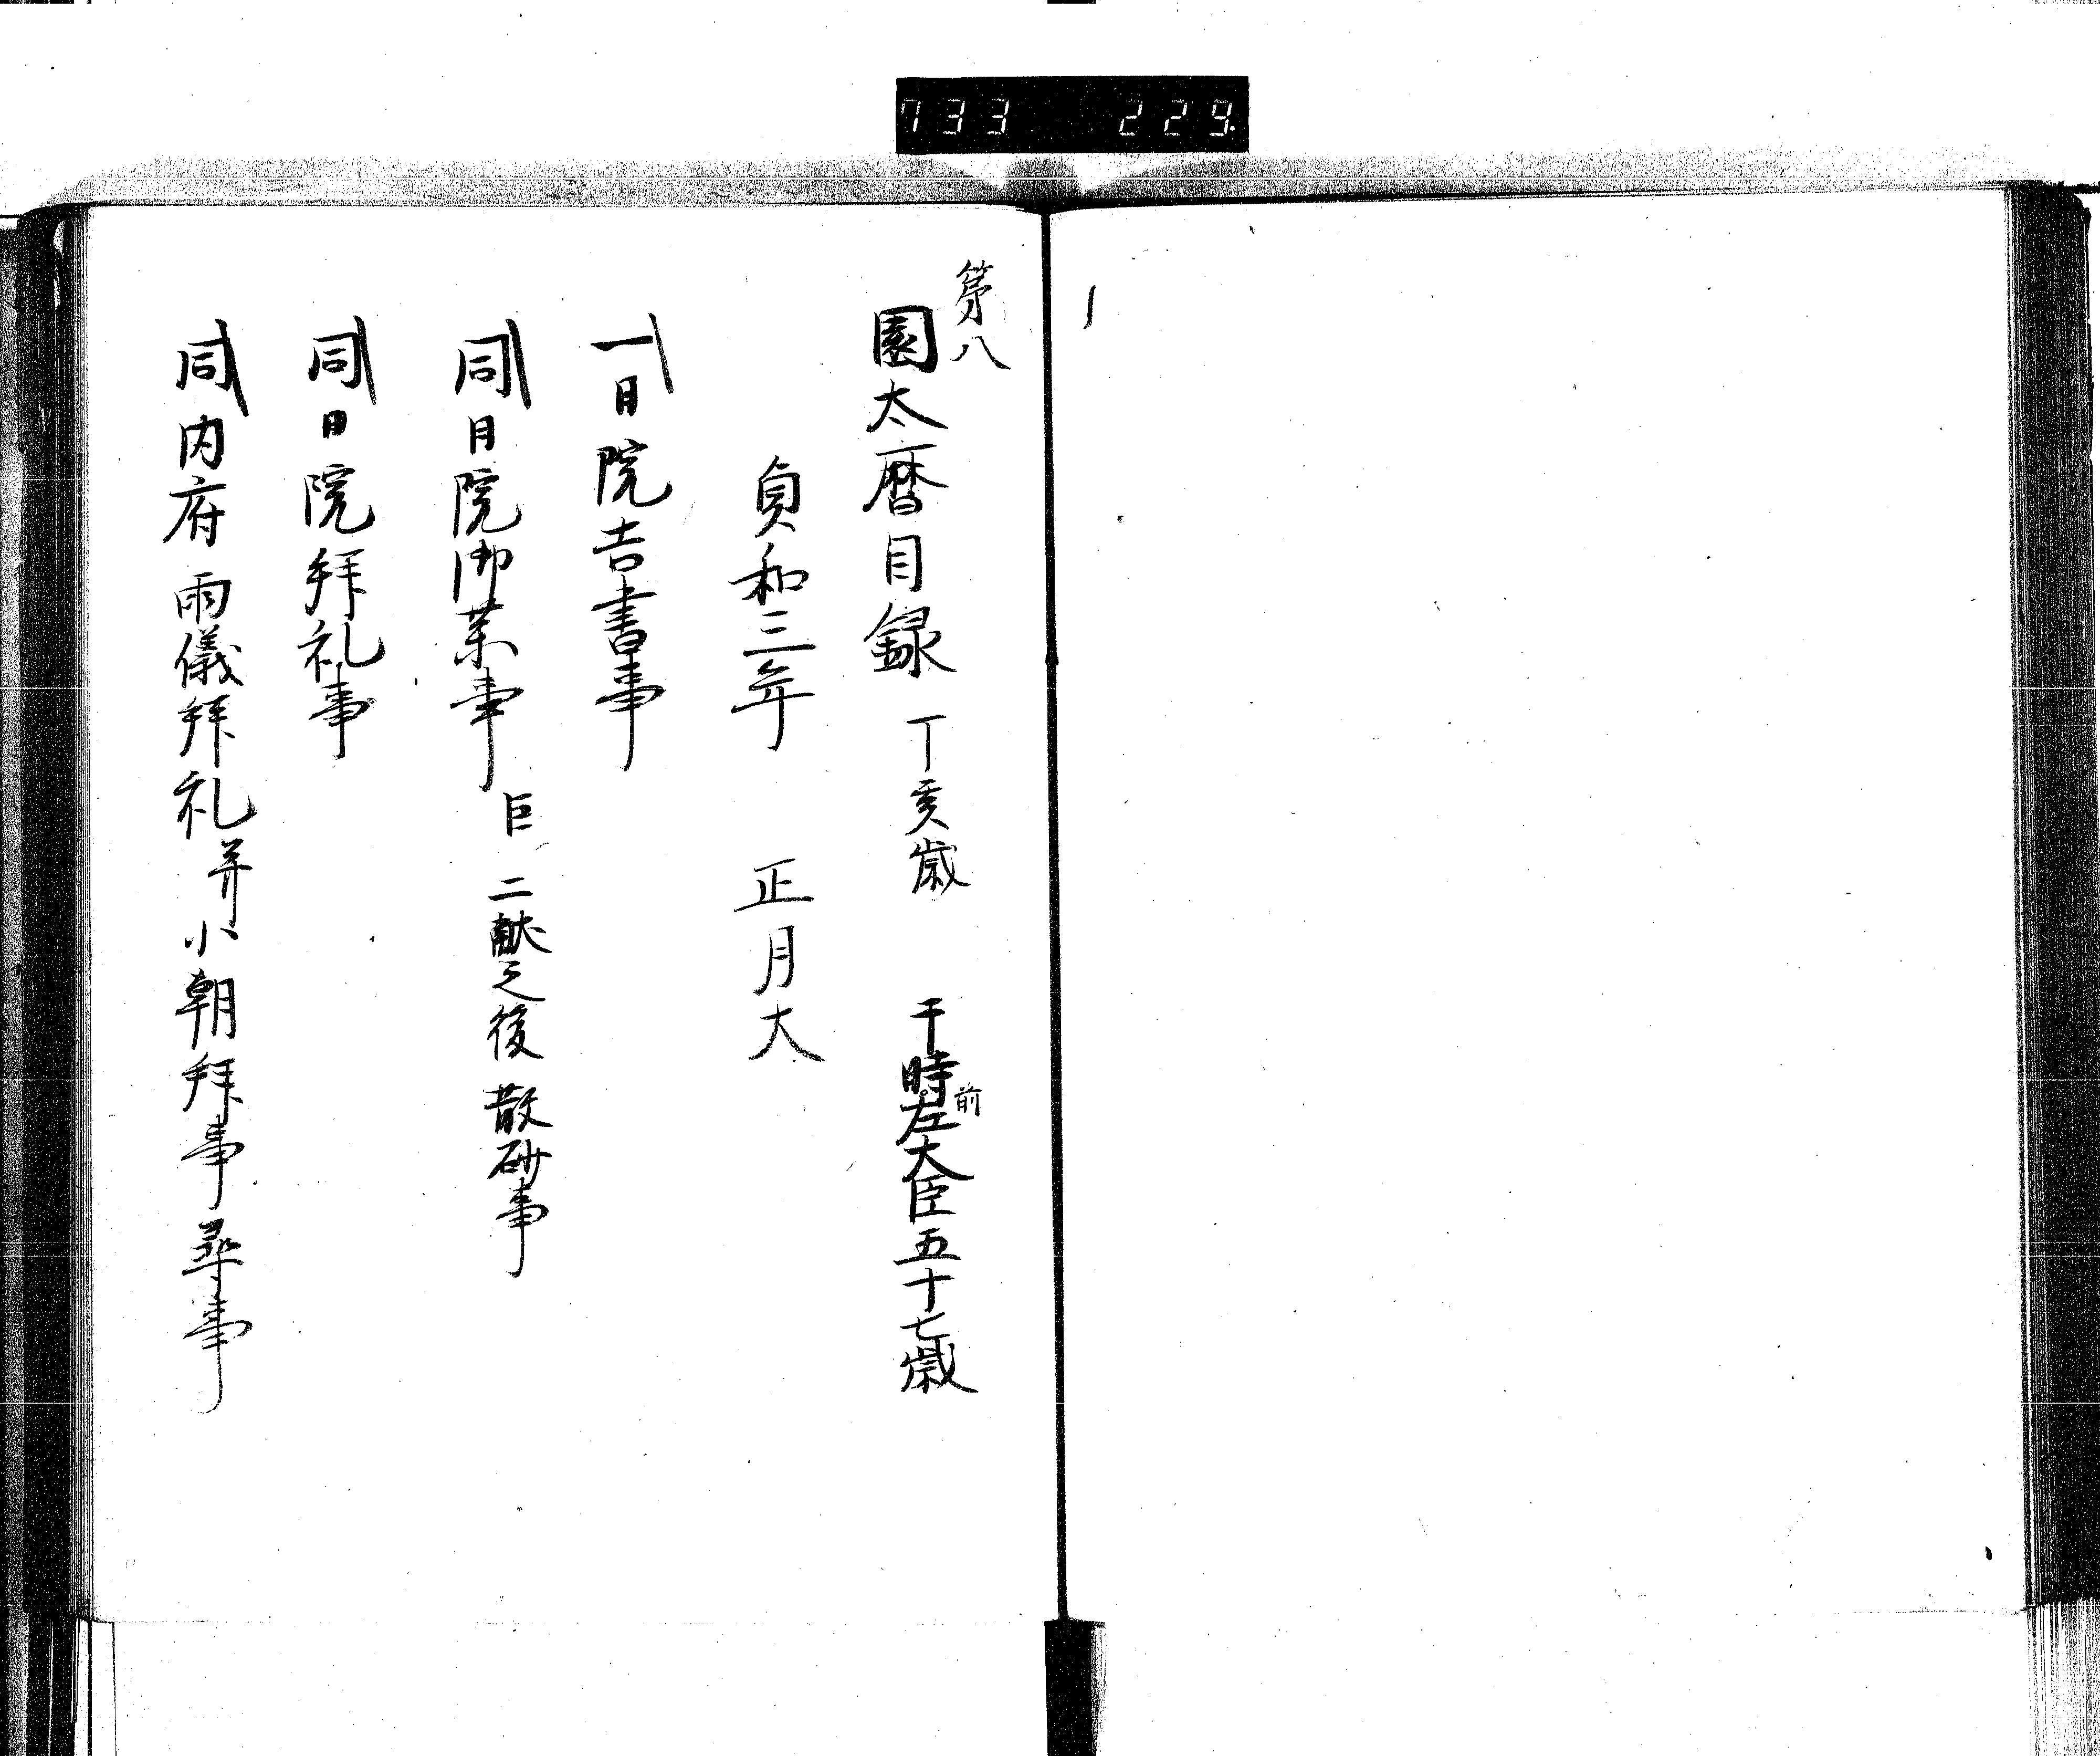 733 229.
第八
園太暦目録 丁亥歳 于時前左大臣五十七歳
貞和三年 正月大
一日院吉書事
同日院御薬事 二献之後散砂事
同日院拝礼事
同内府雨儀拝礼并小朝拝事尋事